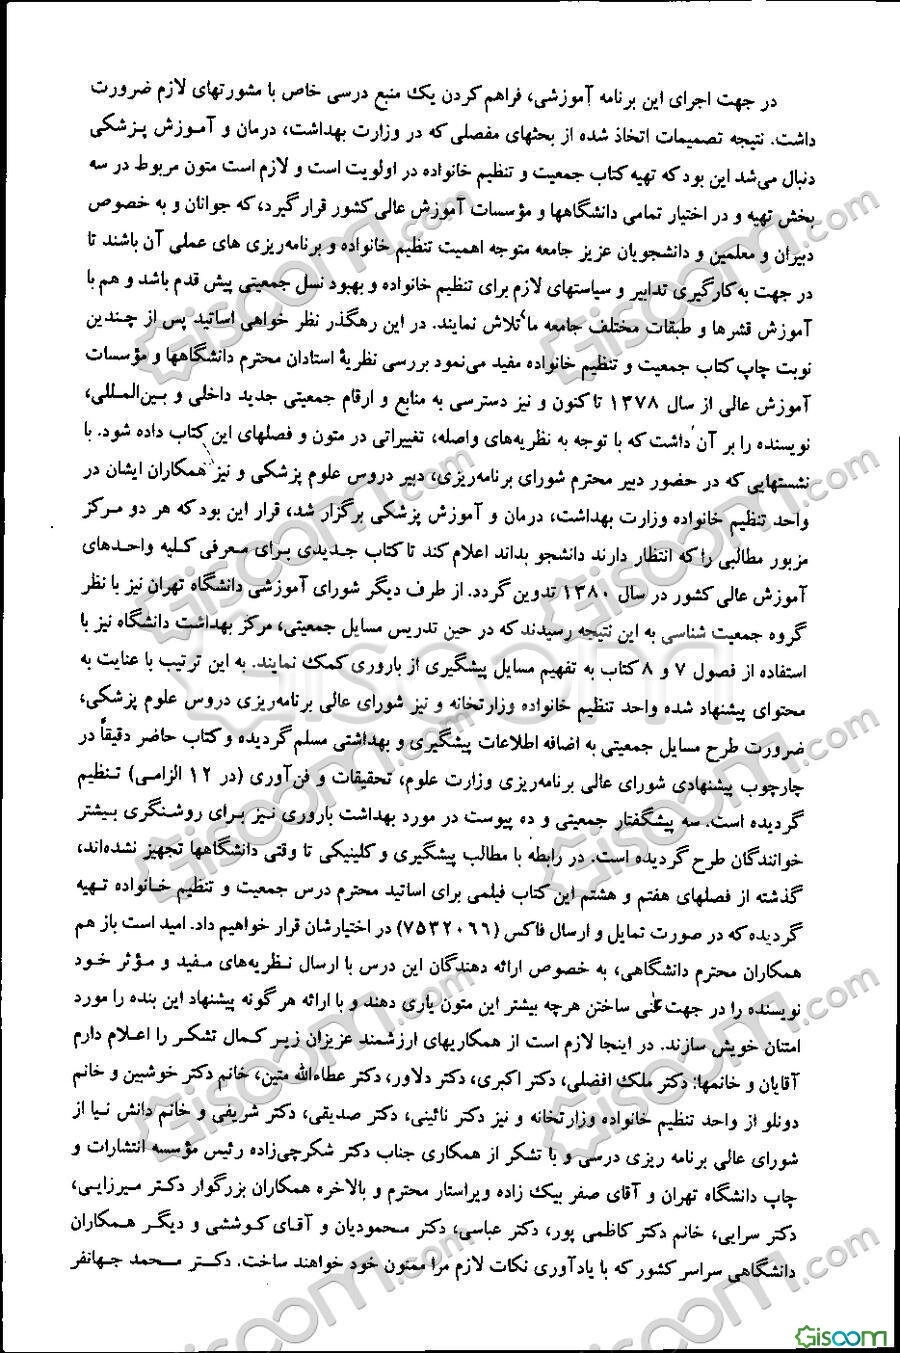 در جهت اجرای این برنامه آموزشی، فراهم کردن یک منبع درسی خاص با مشورتهای لازم ضرورت
داشت. نتیجه تصمیمات اتخاذ شده از بحثهای مفصلی که در وزارت بهداشت، درمان و آموزش پزشکی
دنبال می‌شد این بود که تهیه کتاب جمعیت و تنظیم خانواده در اولویت است و لازم است متون مربوط در سه
بخش تهیه و در اختیار تمامی دانشگاهها و مؤسسات آموزش عالی کشور قرار گیرد، که جوانان و به خصوص
دبیران و معلمین و دانشجویان عزیز جامعه متوجه اهمیت تنظیم خانواده و برنامه‌ریزی های عملی آن باشند تا
در جهت به‌کارگیری تدابیر و سیاستهای لازم برای تنظیم خانواده و بهبود نسل جمعیتی پیش قدم باشد و هم با
آموزش قشرها و طبقات مختلف جامعه ما تلاش نمایند. در این رهگذر نظر خواهی اساتید پس از چندین
نوبت چاپ کتاب جمعیت و تنظیم خانواده مفید می‌نمود بررسی نظریۀ استادان محترم دانشگاهها و مؤسسات
آموزش عالی از سال ۱۳۷۸ تاکنون و نیز دسترسی به منابع و ارقام جمعیتی جدید داخلی و بین‌المللی،
نویسنده را بر آن داشت که با توجه به نظریه‌های واصله، تغییراتی در متون و فصلهای این کتاب داده شود. با
نشستهایی که در حضور دبیر محترم شورای برنامه‌ریزی، دبیر دروس علوم پزشکی و نیز همکاران ایشان در
واحد تنظیم خانواده وزارت بهداشت، درمان و آموزش پزشکی برگزار شد، قرار این بود که هر دو مرکز
مزبور مطالبی را که انتظار دارند دانشجو بداند اعلام کند تا کتاب جدیدی برای معرفی کلیه واحدهای
آموزش عالی کشور در سال ۱۳۸۰ تدوین گردد. از طرف دیگر شورای آموزشی دانشگاه تهران نیز با نظر
گروه جمعیت شناسی به این نتیجه رسیدند که در حین تدریس مسایل جمعیتی، مرکز بهداشت دانشگاه نیز با
استفاده از فصول ۷ و ۸ کتاب به تفهیم مسایل پیشگیری از باروری کمک نمایند. به این ترتیب با عنایت به
محتوای پیشنهاد شده واحد تنظیم خانواده وزارتخانه و نیز شورای عالی برنامه‌ریزی دروس علوم پزشکی،
ضرورت طرح مسایل جمعیتی به اضافه اطلاعات پیشگیری و بهداشتی مسلم گردیده و کتاب حاضر دقیقاً در
چارچوب پیشنهادی شورای عالی برنامه‌ریزی وزارت علوم، تحقیقات و فن‌آوری (در ۱۲ الزامی) تنظیم
گردیده است. سه پیشگفتار جمعیتی و ده پیوست در مورد بهداشت باروری نیز برای روشنگری بیشتر
خوانندگان طرح گردیده است. در رابطه با مطالب پیشگیری و کلینیکی تا وقتی دانشگاهها تجهیز نشده‌اند،
گذشته از فصلهای هفتم و هشتم این کتاب فیلمی برای اساتید محترم درس جمعیت و تنظیم خانواده تهیه
گردیده که در صورت تمایل و ارسال فاکس (۷۵۳۲۰۶۶) در اختیارشان قرار خواهیم داد. امید است باز هم
همکاران محترم دانشگاهی، به خصوص ارائه دهندگان این درس با ارسال نظریه‌های مفید و مؤثر خود
نویسنده را در جهت غنی ساختن هرچه بیشتر این متون یاری دهند و با ارائه هر گونه پیشنهاد این بنده را مورد
امتنان خویش سازند. در اینجا لازم است از همکاریهای ارزشمند عزیزان زیر کمال تشکر را اعلام دارم
آقایان و خانمها: دکتر ملک افضلی، دکتر اکبری، دکتر دلاور، دکتر عطاءالله متین، خانم دکتر خوشبین و خانم
دونلو از واحد تنظیم خانواده وزارتخانه و نیز دکتر نائینی، دکتر صدیقی، دکتر شریفی و خانم دانش نیا از
شورای عالی برنامه ریزی درسی و با تشکر از همکاری جناب دکتر شکرچی‌زاده رئیس مؤسسه انتشارات و
چاپ دانشگاه تهران و آقای صفر بیک زاده ویراستار محترم و بالاخره همکاران بزرگوار دکتر میرزایی،
دکتر سرایی، خانم دکتر کاظمی پور، دکتر عباسی، دکتر محمودیان و آقای کوششی و دیگر همکاران
دانشگاهی سراسر کشور که با یادآوری نکات لازم مرا ممنون خود خواهند ساخت. دکتر محمد جهانفر
Gisoom